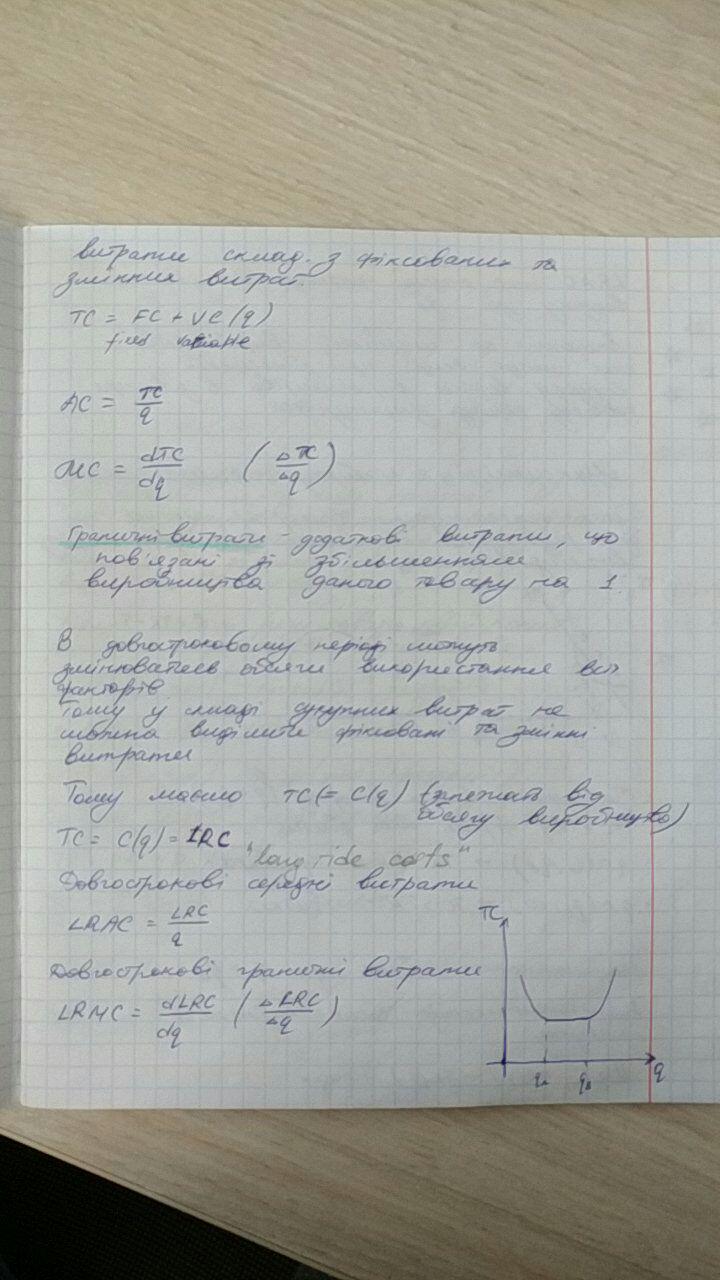 витрати склад. з фіксованих та
змінних витрат.
TC = FC + VC(q)
fixed variable
AC = TC/q
MC = dTC/dq (ΔTC/Δq)
Граничні витрати - додаткові витрати, що
пов'язані зі збільшенням
виробництва даного товару на 1.
В довгостроковому періоді можуть
змінюватись обсяги використання всіх
факторів
Тому у складі сукупних витрат не
можна виділити фіксовані та змінні
витрати
Тому маємо TC(= C(q) (залежать від
обсягу виробництва)
TC = C(q) = LRC
"long ride costs"
Довгострокові середні витрати
LRAC = LRC/q
TC
Довгострокові граничні витрати
LRMC = dLRC/dq (ΔLRC/Δq)
qA qB q